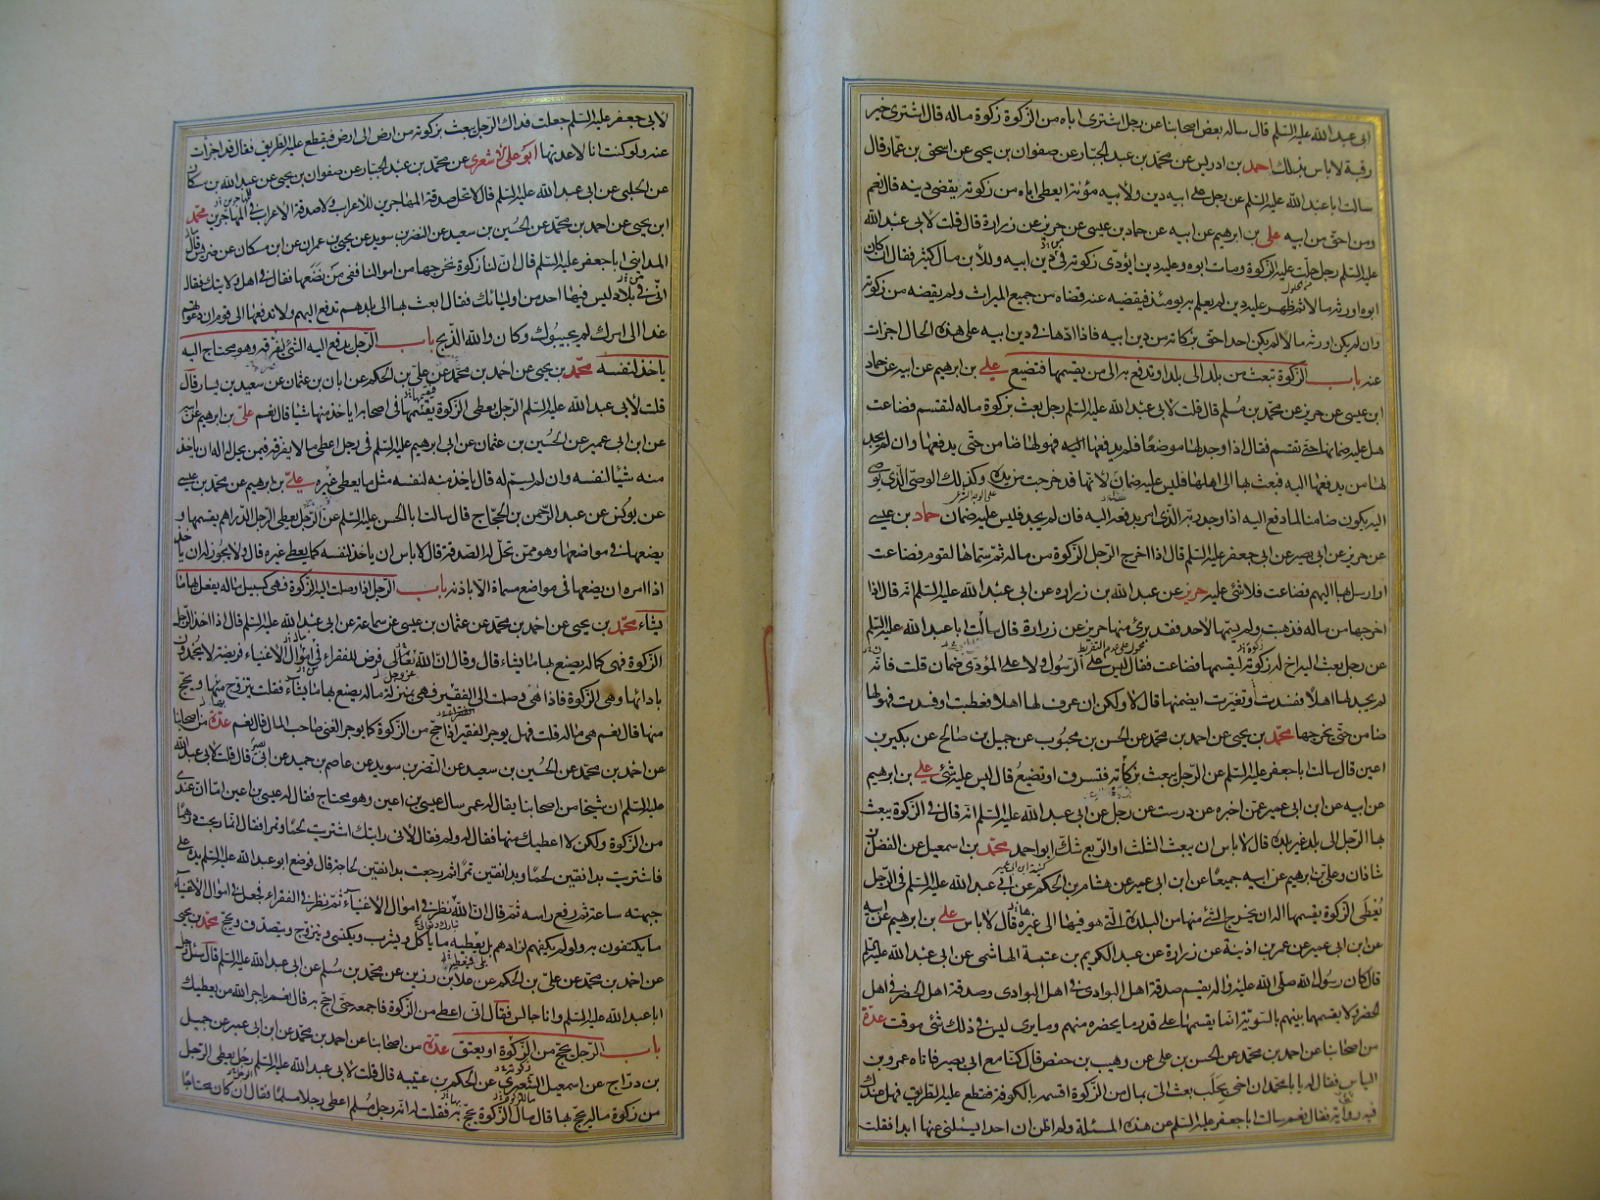 ابى عبد الله عليه السلم قال ساله بعض اصحابنا عن رجل اشترى اباه من الزكوة زكوة ماله قال اشترى خير
رقبة لا باس بذلك احمد بن ادريس عن محمد بن عبد الجبار عن صفوان بن يحيى عن اسحق بن عمار قال
سالت ابا عبد الله عليه السلم عن رجل على ابيه دين ولابيه مؤنة ايعطى اباه من زكوته يقضى دينه قال نعم
ومن احق من ابيه على بن ابرهيم عن ابيه عن حماد بن عيسى عن حريز عن زرارة قال قلت لابى عبد الله
عليه السلم رجل حلت عليه الزكوة ومات ابوه وعليه دين ايؤدى زكوته فى دين ابيه وللابن مال كثير فقال ان كان
ابوه اورثه مالا ثم ظهر عليه دين لم يعلم به يومئذ فيقضيه عنه قضاه من جميع الميراث ولم يقضه من زكوته
وان لم يكن اورثه مالا لم يكن احد احق بزكاته من دين ابيه فاذا اداها فى دين ابيه على هذه الحال اجزات
عنه باب الزكوة تبعث من بلد الى بلد او تدفع الى من يقسمها فتضيع على بن ابرهيم عن ابيه عن حماد
ابن عيسى عن حريز عن محمد بن مسلم قال قلت لابى عبد الله عليه السلم رجل بعث بزكوة ماله لتقسم فضاعت
هل عليه ضمانها حتى تقسم فقال اذا وجد لها موضعا فلم يدفعها اليه فهو لها ضامن حتى يدفعها وان لم يجد
لها من يدفعها اليه فبعث بها الى اهلها فليس عليه ضمان لانها قد خرجت من يده وكذلك الوصى الذى يوصى
اليه يكون ضامنا لما دفع اليه اذا وجد ربه الذى امر بدفعه اليه فان لم يجد فليس عليه ضمان حماد بن عيسى
عن حريز عن ابى بصير عن ابى جعفر عليه السلم قال اذا اخرج الرجل الزكوة من ماله ثم سماها لقوم فضاعت
او ارسل بها اليهم فضاعت فلا شئ عليه حريز عن عبد الله بن زراره عن ابى عبد الله عليه السلم انه قال اذا
اخرجها من ماله فذهبت ولم يسمها لاحد فقد برئ منها حريز عن زرارة قال سالت ابا عبد الله عليه السلم
عن رجل بعث اليه اخ له زكوته ليقسمها فضاعت فقال ليس على الرسول ولا على المؤدى ضمان قلت فانه
لم يجد لها اهلا ففسدت وتغيرت ايضمنها قال لا ولكن ان عرف لها اهلا فعطبت او فسدت فهو لها
ضامن حتى يخرجها محمد بن يحيى عن احمد بن محمد عن الحسن بن محبوب عن جميل بن صالح عن بكير بن
اعين قال سالت ابا جعفر عليه السلم عن الرجل يبعث بزكاته فتسرق او تضيع قال ليس عليه شئ على بن ابرهيم
عن ابيه عن ابن ابى عمير عمن اخبره عن درست عن رجل عن ابى عبد الله عليه السلم انه قال فى الزكوة يبعث
بها الرجل الى بلد غير بلده قال لا باس ان يبعث الثلث او الربع شك ابو احمد محمد بن اسمعيل عن الفضل بن
شاذان وعلى بن ابرهيم عن ابيه جميعا عن ابن ابى عمير عن هشام بن الحكم عن ابى عبد الله عليه السلم فى الرجل
يعطى الزكوة يقسمها اله ان يخرج الشئ منها من البلدة التى هو فيها الى غيره قال لا باس على بن ابرهيم عن ابيه
عن ابن ابى عمير عن عمر بن اذينة عن زرارة عن عبد الكريم بن عتبة الهاشمى عن ابى عبد الله عليه السلم
قال كان رسول الله صلى الله عليه واله يقسم صدقة اهل البوادى فى اهل البوادى وصدقة اهل الحضر فى اهل
الحضر ولا يقسمها بينهم بالسوية انما يقسمها على قدر ما يحضره منهم وما يرى ليس فى ذلك شئ موقت عدة
من اصحابنا عن احمد بن محمد عن الحسن بن على عن وهيب بن حفص قال كنا مع ابى بصير فاتاه عمرو بن
الياس فقال له يا با محمد ان اخى بحلب بعث الى بمال من الزكوة اقسمه بالكوفة فقطع عليه الطريق فهل عندك
فيه رواية فقال نعم سالت ابا جعفر عليه السلم عن هذه المسئلة ولم اظن ان احدا يسئلنى عنها ابدا فقلت
لابى جعفر عليه السلم جعلت فداك الرجل يبعث بزكوته من ارض الى ارض فيقطع عليه الطريق فقال قد اجزات
عنه ولو كنت انا لاعدتها ابو على الاشعرى عن محمد بن عبد الجبار عن صفوان بن يحيى عن عبد الله بن مسكان
عن الحلبى عن ابى عبد الله عليه السلم قال لا تحل صدقة المهاجرين للاعراب ولا صدقة الاعراب فى المهاجرين محمد
ابن يحيى عن احمد بن محمد عن الحسين بن سعيد عن النضر بن سويد عن يحيى بن عمران عن ابن مسكان عن ضريس قال
المداينى ابا جعفر عليه السلم قال ان لنا زكوة نخرجها من اموالنا ففى من نضعها فقال فى اهل ولايتك فقال
انى فى بلاد ليس فيها احد من اوليائك فقال ابعث بها الى بلدهم تدفع اليهم ولا تدفعها الى قوم ان دعوتهم
غدا الى امرك لم يجيبوك وكان والله الذبح باب الرجل يدفع اليه الشئ يفرقه وهو محتاج اليه
ياخذ لنفسه محمد بن يحيى عن احمد بن محمد عن على بن الحكم عن ابان بن عثمان عن سعيد بن يسار قال
قلت لابى عبد الله عليه السلم الرجل يعطى الزكوة يقسمها فى اصحابه اياخذ منها شيئا قال نعم على بن ابرهيم عن ابيه
عن ابن ابى عمير عن الحسين بن عثمان عن ابى ابرهيم عليه السلم فى رجل اعطى مالا يفرقه فيمن يحل له اله ان ياخذ
منه شيئا لنفسه وان لم يسم له قال ياخذ منه لنفسه مثل ما يعطى غيره على بن ابرهيم عن محمد بن عيسى
عن يونس عن عبد الرحمن بن الحجاج قال سالت ابا الحسن عليه السلم عن الرجل يعطى الرجل الدراهم يقسمها و
يضعها فى مواضعها وهو ممن تحل له الصدقة قال لا باس ان ياخذ لنفسه كما يعطى غيره قال ولا يجوز له ان ياخذ
اذا امره ان يضعها فى مواضع مسماة الا باذنه باب الرجل اذا وصلت اليه الزكوة فهى كسبيل ماله يفعل بها ما
يشاء محمد بن يحيى عن احمد بن محمد عن عثمان بن عيسى عن سماعة عن ابى عبد الله عليه السلم قال اذا اخذ الرجل
الزكوة فهى كماله يصنع بها ما يشاء قال وقال ان الله تعالى فرض للفقراء فى اموال الاغنياء فريضة لا يحمدون
بادائها وهى الزكوة فاذا هى وصلت الى الفقير فهى بمنزلة ماله يصنع بها ما يشاء فقلت يتزوج منها ويحج
منها قال نعم هى ماله قلت فهل يوجر الفقير اذا حج من الزكوة كما يوجر الغنى صاحب المال قال نعم عدة من اصحابنا
عن احمد بن محمد عن الحسين بن سعيد عن النضر بن سويد عن عاصم بن حميد عن ابى بصير قال قلت لابى عبد الله
عليه السلم ان شيخا من اصحابنا يقال له عمر سال عيسى بن اعين وهو محتاج فقال له عيسى بن اعين اما ان عندى
من الزكوة ولكن لا اعطيك منها فقال له ولم فقال لانى رايتك اشتريت لحما وتمرا فقال انما ربحت درهما
فاشتريت بدانقين لحما وبدانقين تمرا ثم رجعت بدانقين لحاجة قال فوضع ابو عبد الله عليه السلم يده على
جبهته ساعة ثم رفع راسه ثم قال ان الله نظر فى اموال الاغنياء ثم نظر فى الفقراء فجعل فى اموال الاغنياء
ما يكتفون به ولو لم يكفهم لزادهم بل يعطيه ما ياكل ويشرب ويكتسى ويتزوج ويتصدق ويحج محمد بن يحيى
عن احمد بن محمد عن على بن الحكم عن علا بن رزين عن محمد بن مسلم عن ابى عبد الله عليه السلم قال سئل رجل
ابا عبد الله عليه السلم وانا جالس فقال انى اعطى من الزكوة فاجمعه حتى احج به قال نعم ياجر الله من يعطيك
باب الرجل يحج من الزكوة او يعتق عدة من اصحابنا عن احمد بن محمد عن ابن ابى عمير عن جميل
بن دراج عن اسمعيل الشعيرى عن الحكم بن عتيبة قال قلت لابى عبد الله عليه السلم رجل يعطى الرجل
من زكوة ماله يحج بها قال مال الزكوة يحج به فقلت له انه رجل مسلم اعطى رجلا مسلما فقال ان كان محتاجا